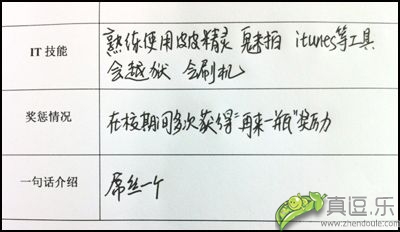 IT 技能
熟练使用皮皮精灵 魅拍 itunes等工具
会越狱 会刷机
奖惩情况
在校期间多次获得“再来一瓶”奖励
一句话介绍
屌丝一个
真逗.乐
www.zhendoule.com